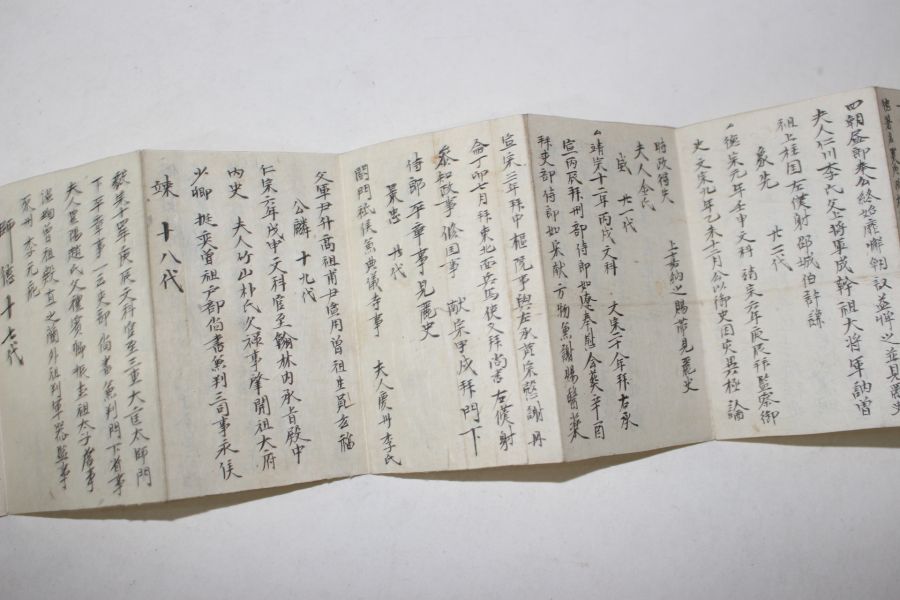 四朝
夫人仁川李氏父上將軍成幹祖大將軍訥曾
祖上柱國左僕射邵城伯許謙
象先 廿二代
德宗元年壬申文科 靖宗六年庚辰拜監察御
史文宗九年乙未十二月公以御史因災異極論
時政得失 上嘉納之賜帶見麗史
夫人金氏
威 廿一代
靖宗十二年丙戌文科 文宗二十八年拜右承
宣丙辰拜刑部侍郎如遼奉慰 辛酉
拜吏部侍郎如宋獻方物兼謝賜醫藥
宣宗三年拜中樞院事與右承宣 謝丹
侖丁卯七月拜東北面兵馬使又拜尚書左僕射
參知政事修國事 獻宗甲戌拜門下
侍郎平章事見麗史
景忠 廿代
閤門祇候兼典議寺事 夫人慶州李氏
父軍尹升高祖甫尹 用曾祖生員玄福
公麟 十九代
仁宗六年戊申文科官至翰林內承旨殿中
內史 夫人竹山朴氏父祿事肇開祖太府
少卿挺奕曾祖戶部尚書兼判三司事承侯
竦 十八代
毅宗十四年庚辰文科官至三重大匡太師門
下平章事一云吏部尚書兼判門下省事
夫人 趙氏父禮賓卿 祖太子詹事
曾祖殿直之簡外祖判軍器監事
李元
師德十七代